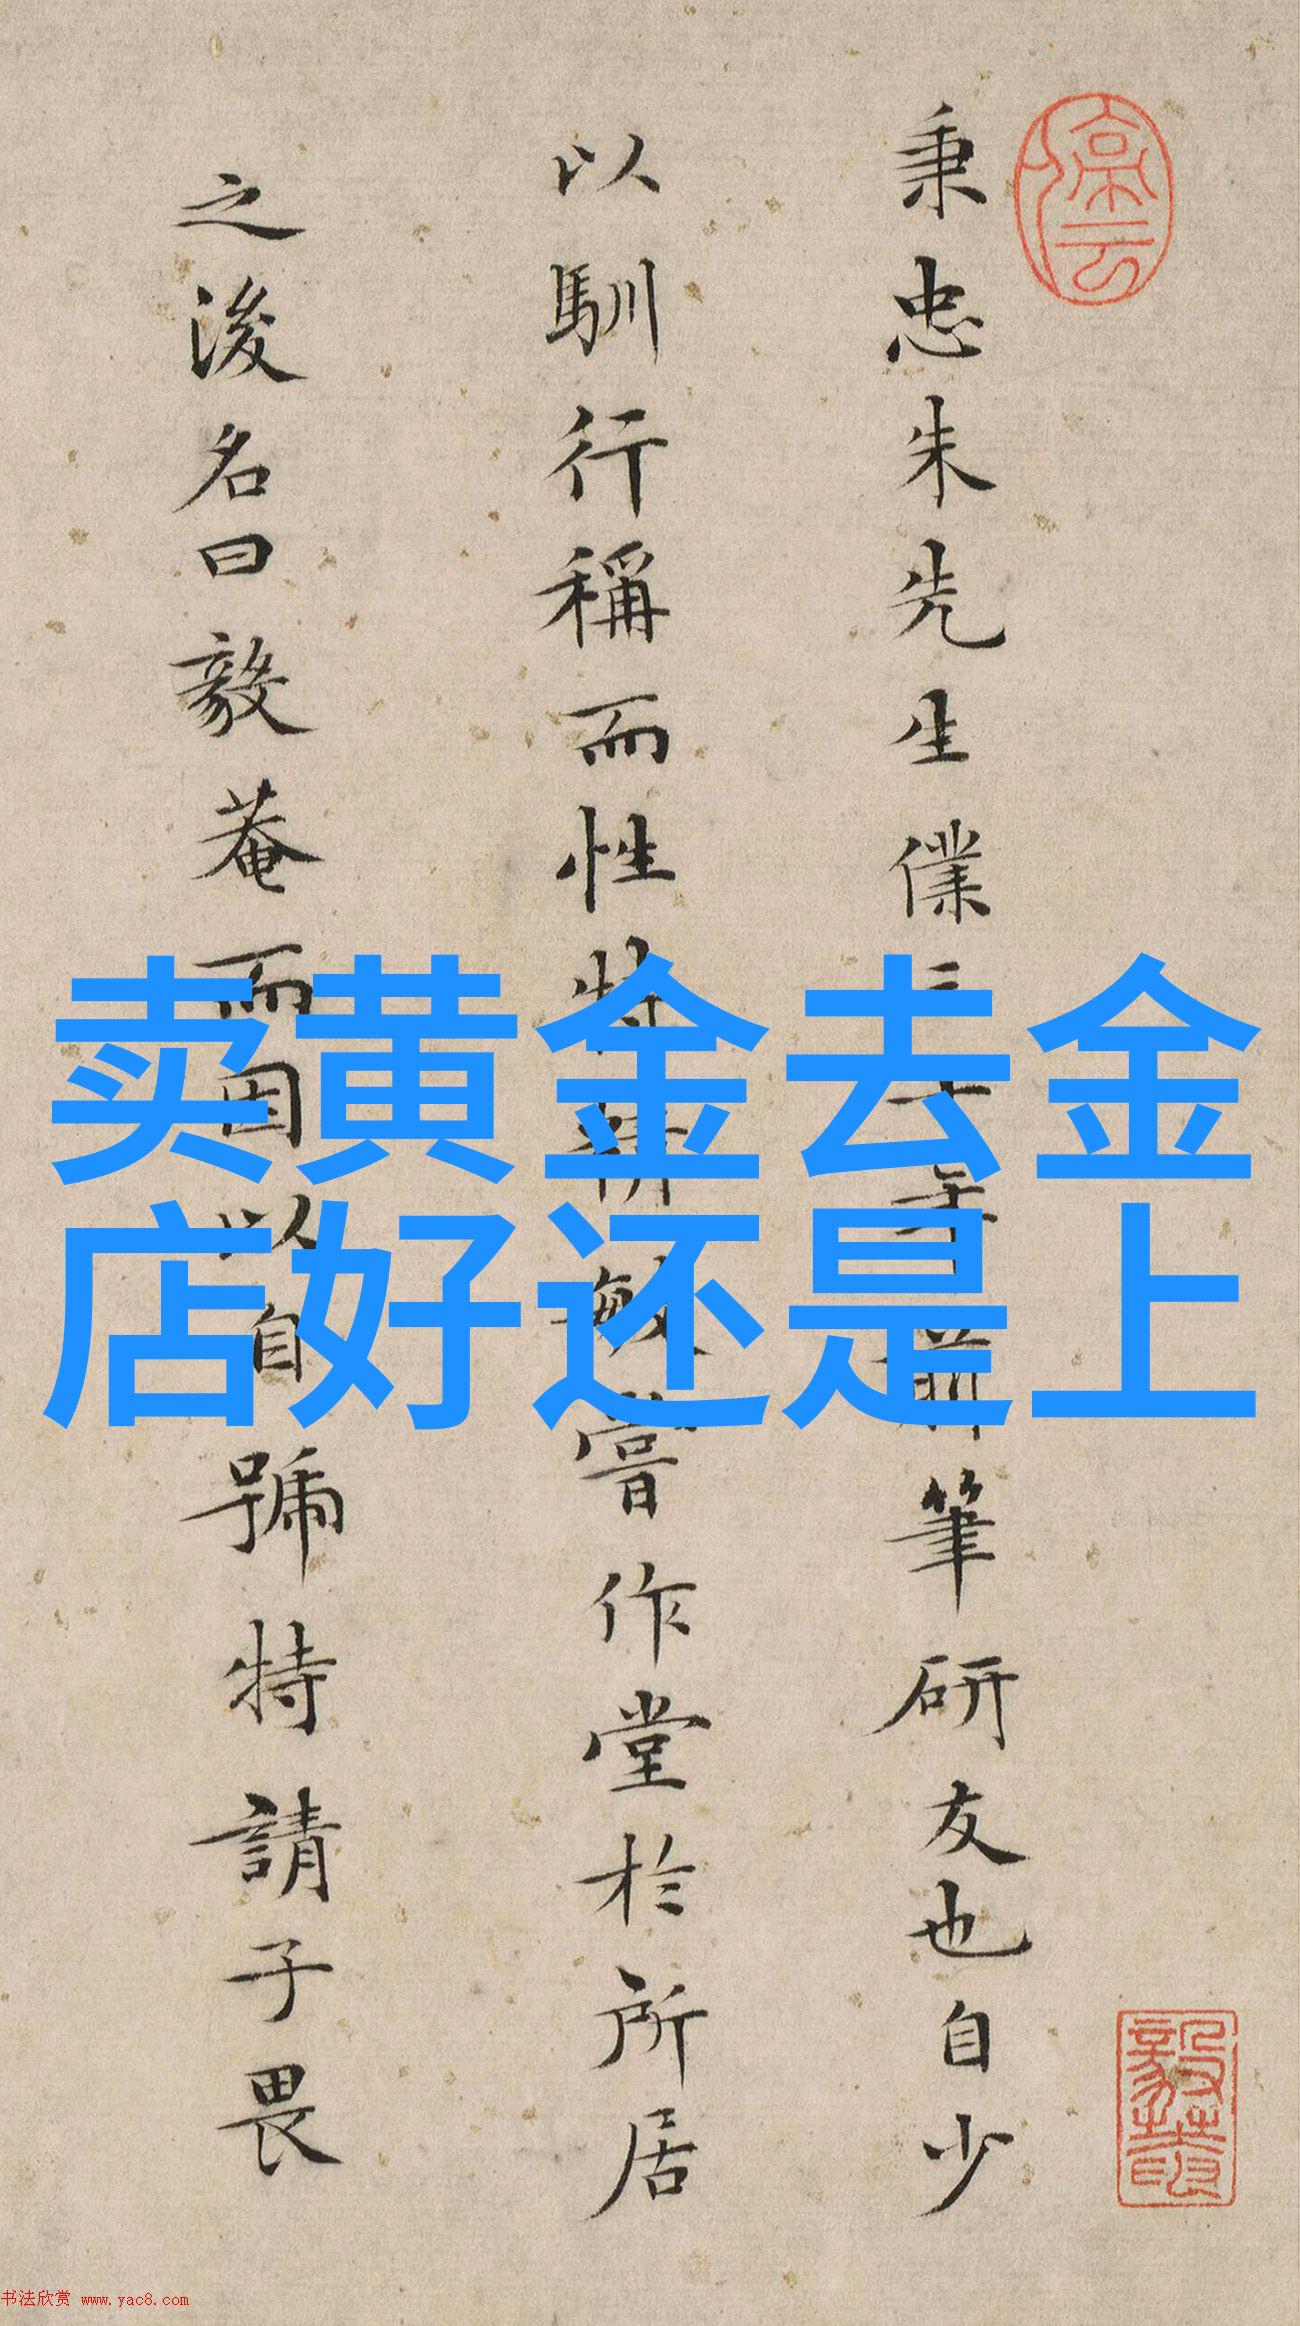 秉忠朱先生僕三十年前筆研友也自少
以馴行稱而性特精敏嘗作堂於所居
之後名曰毅菴而因以自號特請子畏
卖黄金去金
店好还是上
书法欣赏 www.yac8.com